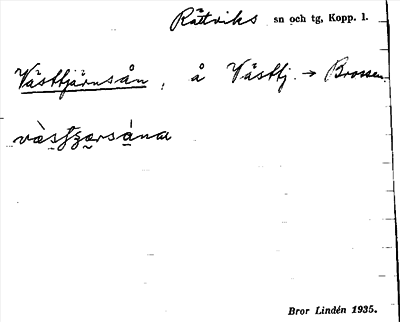 Rättviks sn och tg, Kopp. l.
Västtjärnsån, å Västtj. → Brossen
Bror Lindén 1935.